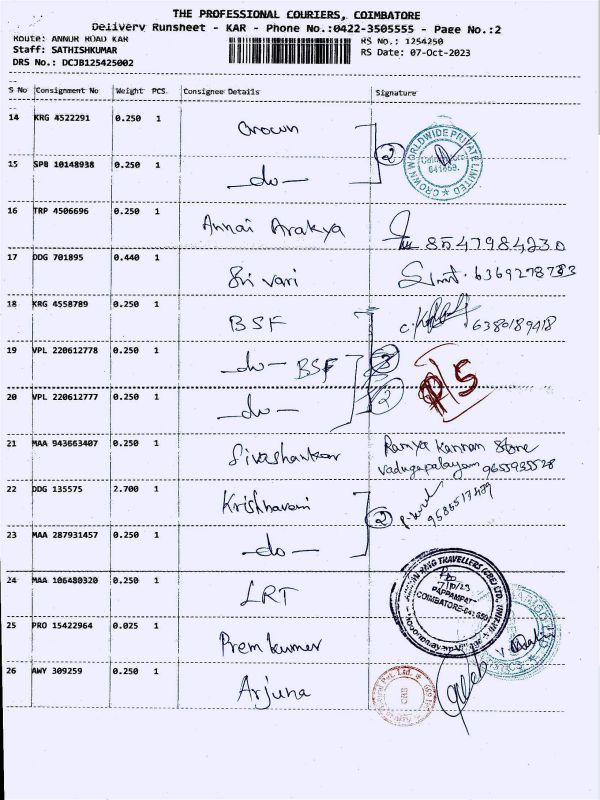 THE PROFESSIONAL COURIERS, COIMBATORE
Delivery Runsheet - KAR - Phone No.:0422-3505555 - Page No.:2
Route: ANNUR ROAD KAR RS No.: 1254250
Staff: SATHISHKUMAR RS Date: 07-Oct-2023
DRS No.: DCJB125425002
S No Consignment No Weight PCS. Consignee Details Signature
14 KRG 4522291 0.250 1 Crown
2
CROWN WORLDWIDE PRIVATE LIMITED
641659.
15 SPB 10148938 0.250 1 -do-
16 TRP 4506696 0.250 1 Annai Arakya 8547984230
17 DDG 701895 0.440 1 Sri vari
18 KRG 4558789 0.250 1 BSF 6380189418
19 VPL 220612778 0.250 1 -do- BSF
P/S
20 VPL 220612777 0.250 1 -do- 2
21 MAA 943663407 0.250 1 Sivashankar Ramya Kannan Store
Vadugapalayam 9655935528
22 DDG 135575 2.700 1 Krishnaveni
2
23 MAA 287931457 0.250 1 -do-
24 MAA 106480320 0.250 1 LRT
TRAVELLERS (CBE)
7/10/23
PAPPAMPATTI
COIMBATORE-
25 PRO 15422964 0.025 1 Prem kumar
26 AWY 309259 0.250 1 Arjuna